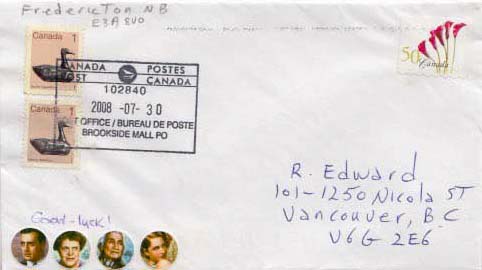 Fredericton NB
E3A 5V0
Canada 1
Canada 1
CANADA POSTES
POST CANADA
102840
2008 -07- 30
T OFFICE / BUREAU DE POSTE
BROOKSIDE MALL PO
50
Canada
R. Edward
101-1250 Nicola ST
Vancouver, BC
V6G 2E6
Good-luck!